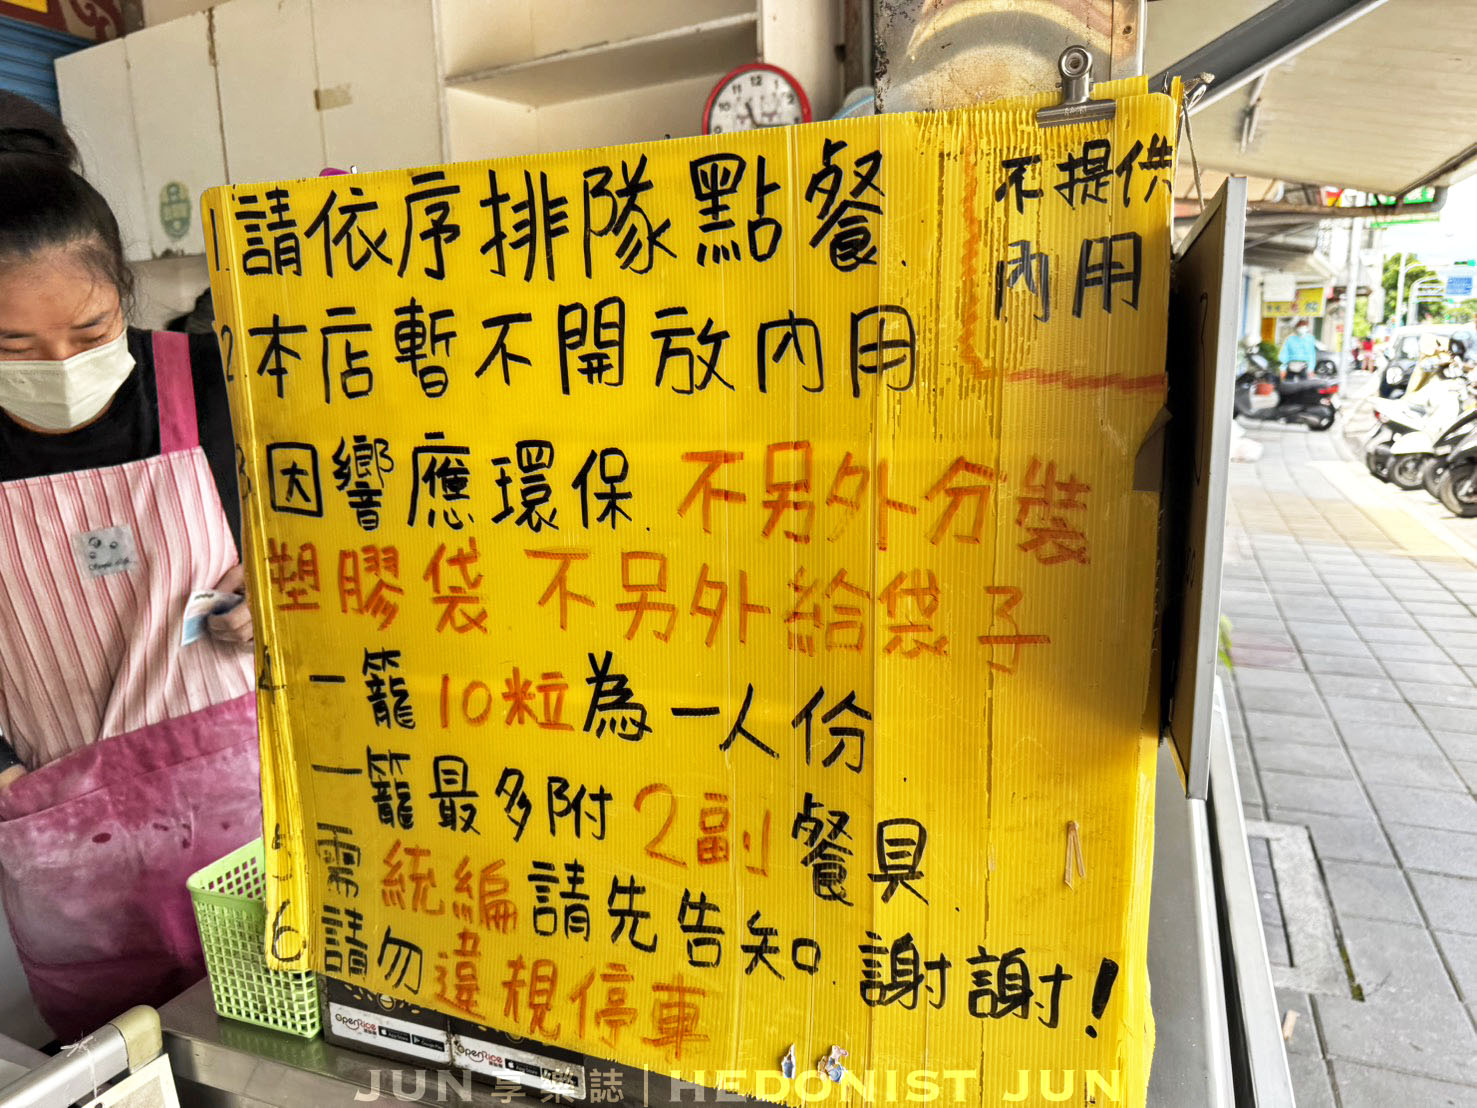 1. 請依序排隊點餐.
不提供
內用
2 本店暫不開放內用
3 因響應環保. 不另外分裝
塑膠袋 不另外給袋子
4 一籠10粒為一人份
一籠最多附2副餐具
5 需統編請先告知. 謝謝!
6 請勿違規停車
OpenRice
OpenRice
JUN享樂誌 | HEDONIST JUN